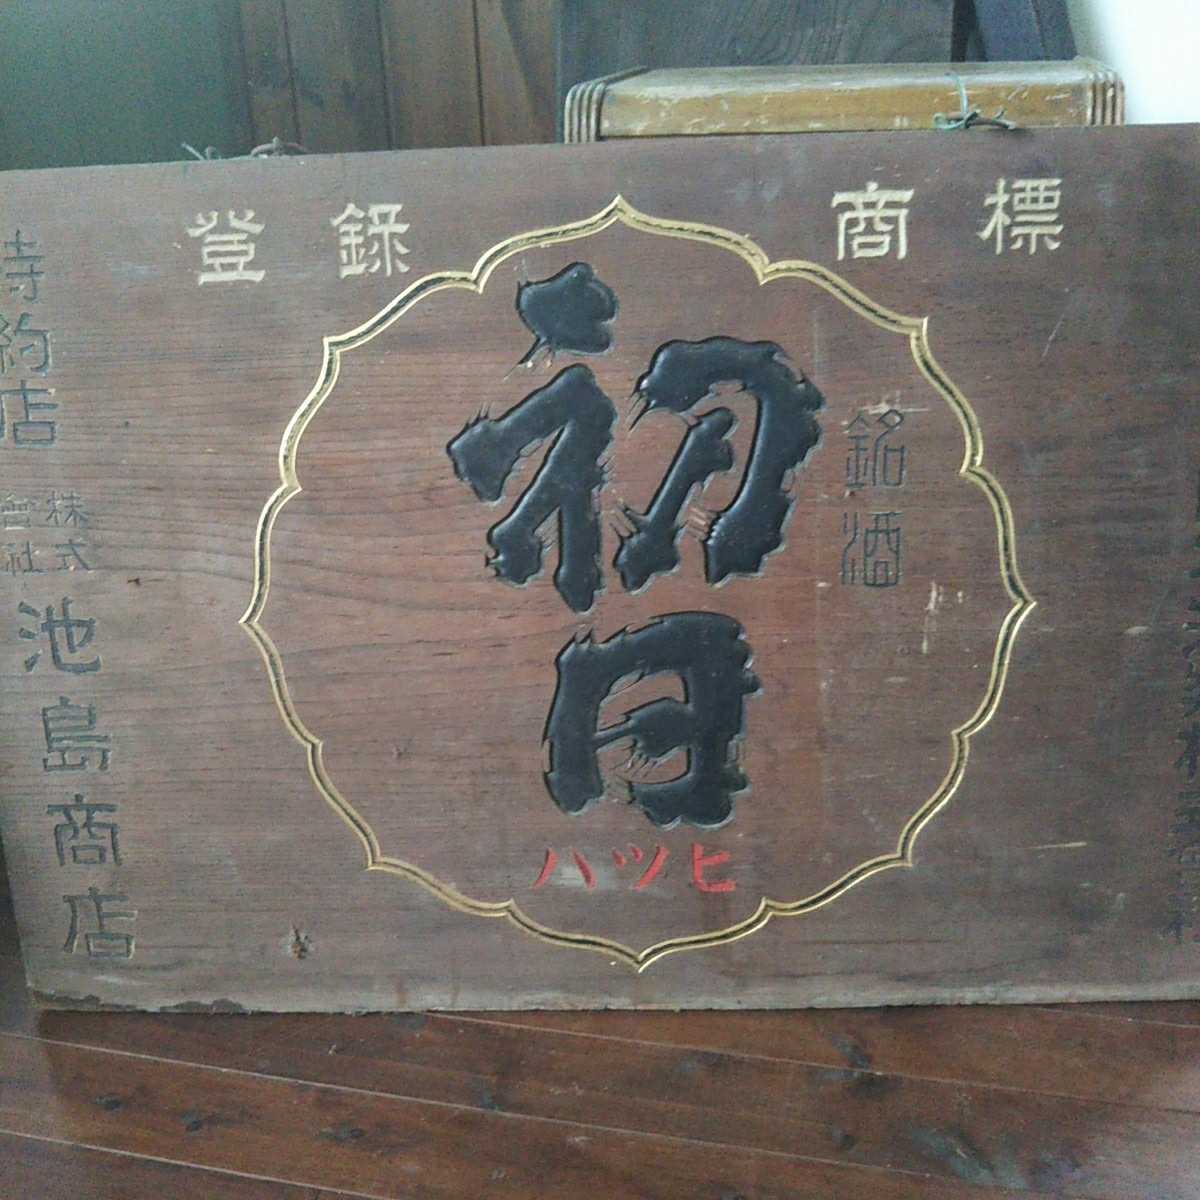 登録商標
銘酒
初日
ハツヒ
特約店
株式會社
池島商店